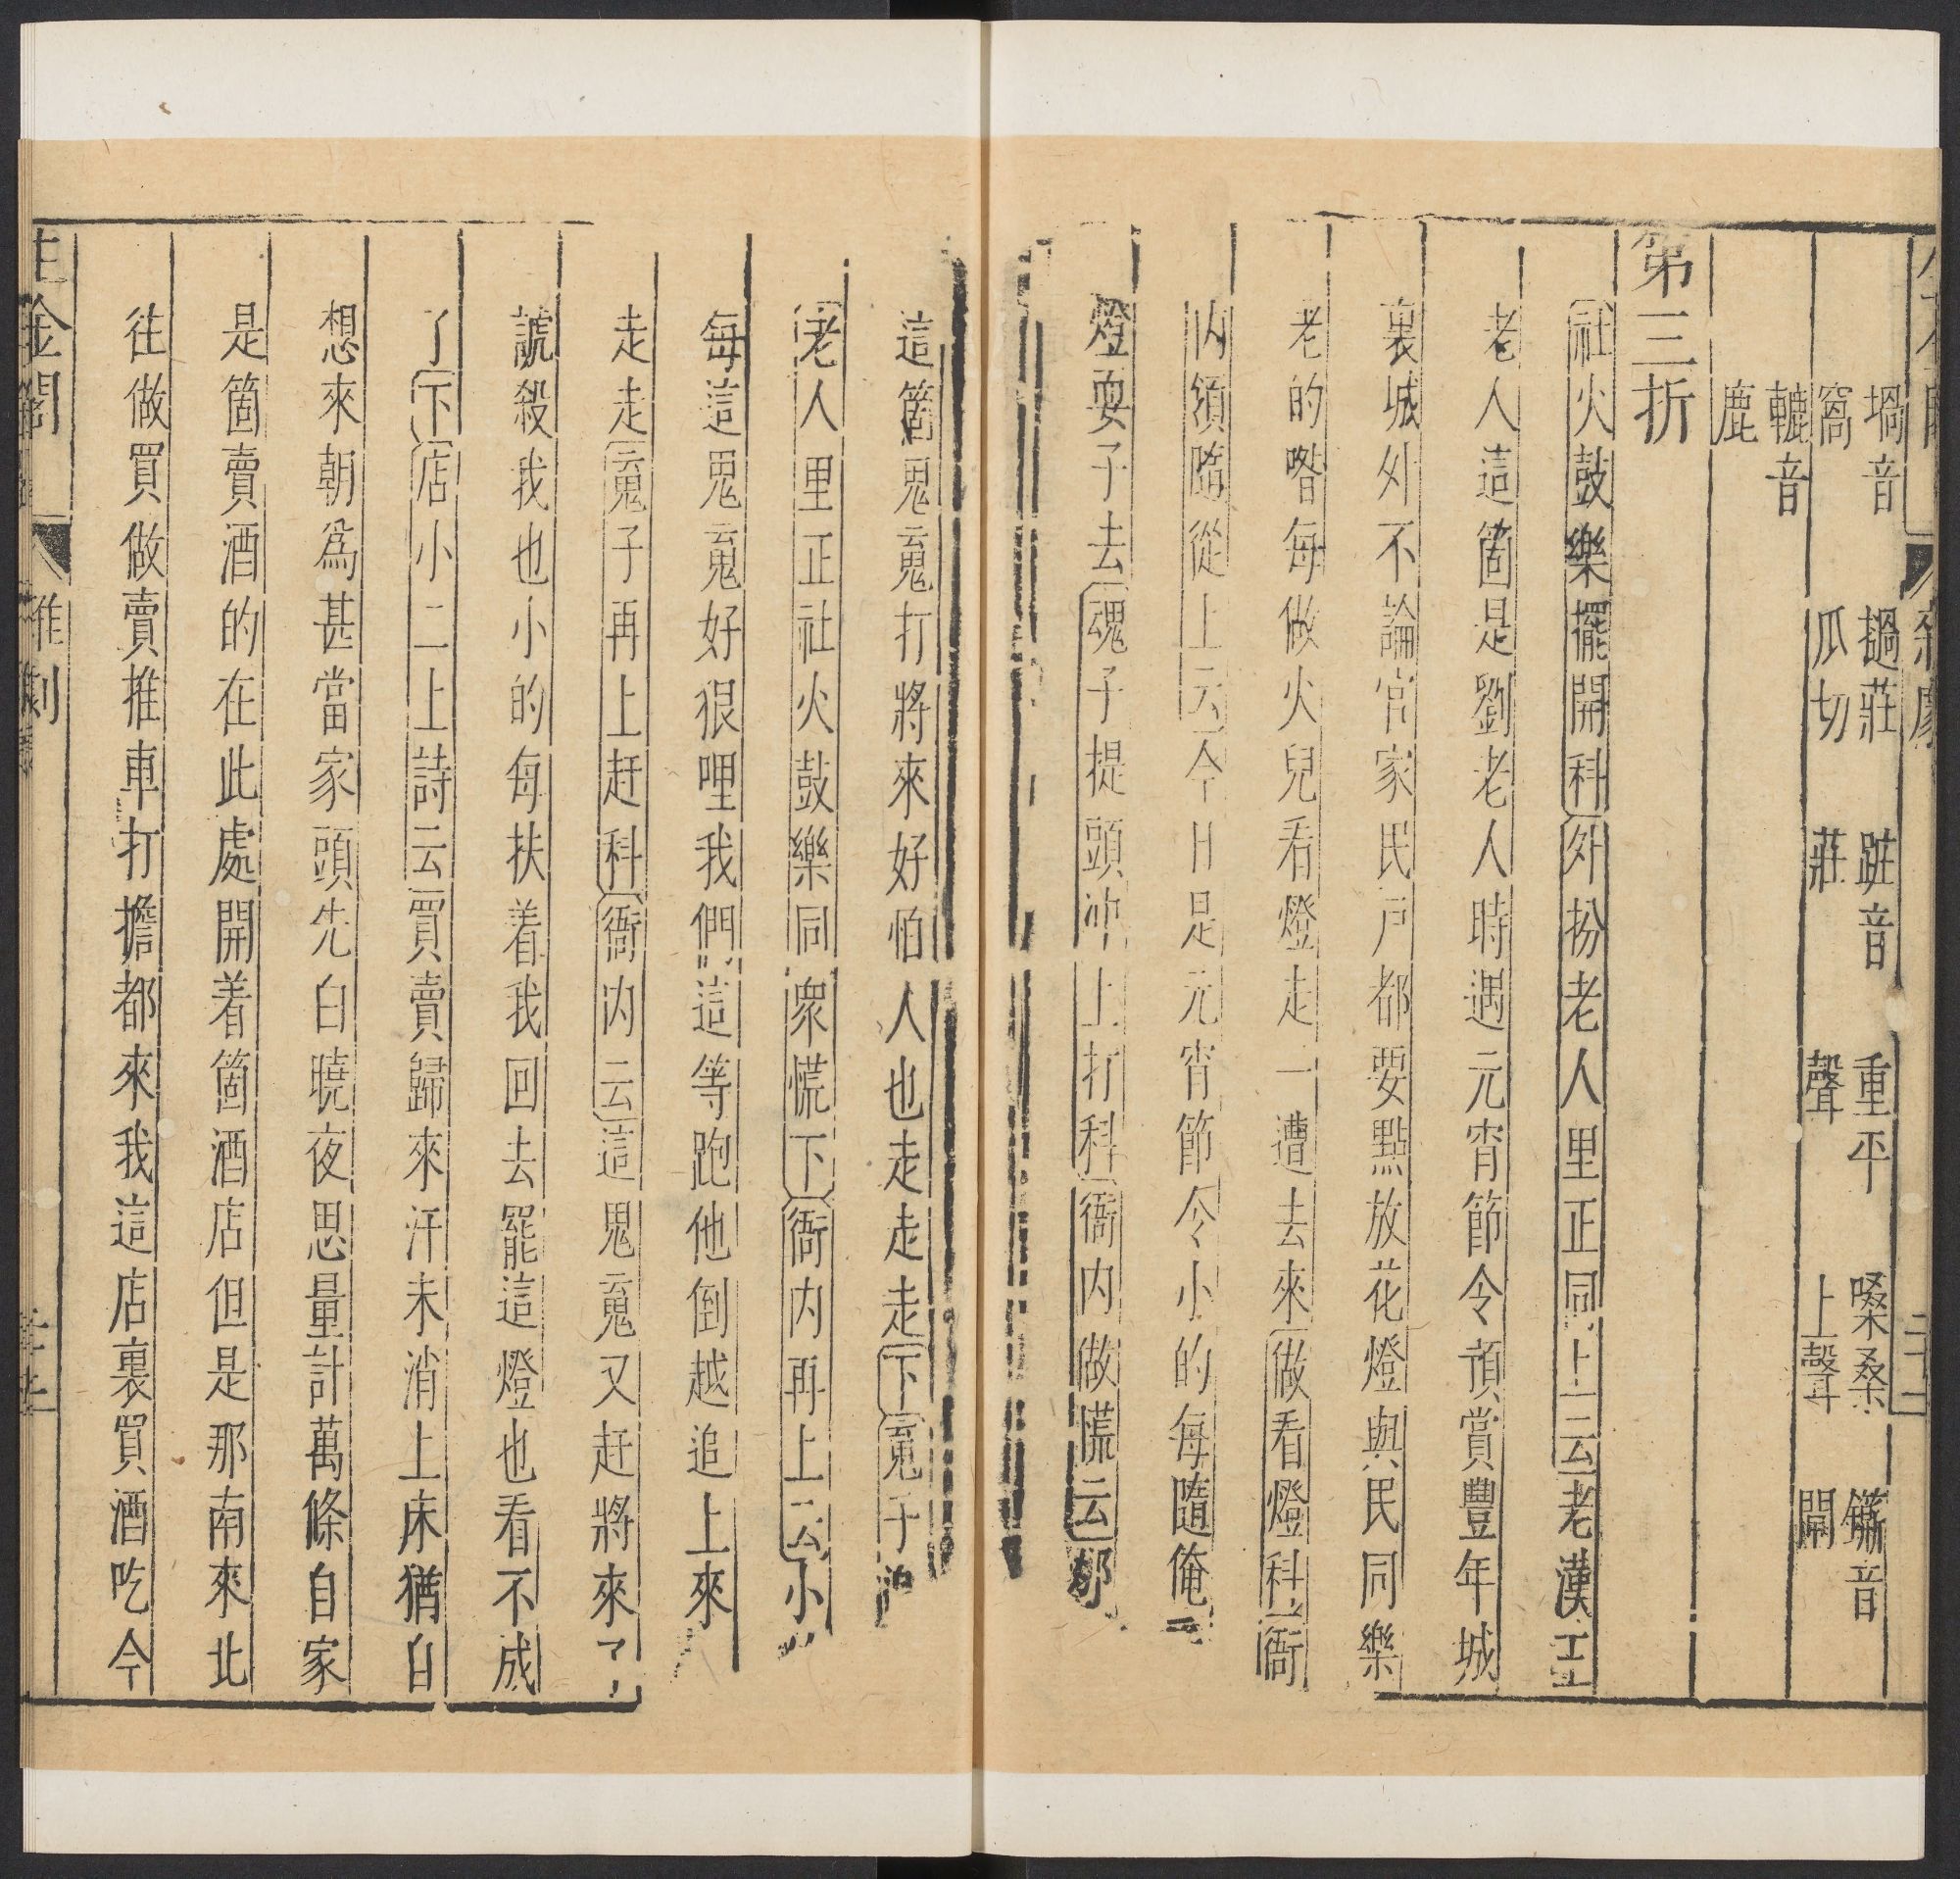 堝音窩 撾莊瓜切 䟫音莊 重平聲 嗓桑上聲 鏁音鬧
轆音鹿
第三折
社火鼓樂擺開科外扮老人里正同上云老漢王
老人這箇是劉老人時遇元宵節令預賞豐年城
裏城外不論官家民戶都要點放花燈與民同樂
老的喒每做火兒看燈走一遭去來做看燈科衙
内領隨從上云今日是元宵節令小的每隨俺二
燈耍子去魂子提頭沖上打科衙内做慌云那
這箇鬼䰟打將來好怕人也走走走下䰟子追
老人里正社火鼓樂同衆慌下衙内再上云小
每這鬼䰟好狠哩我們這等跑他倒越追上來
走走䰟子再上赶科衙内云這鬼䰟又赶將來了
諕殺我也小的每扶着我回去罷這燈也看不成
了下店小二上詩云買賣歸來汗未消上床猶自
想來朝爲甚當家頭先白曉夜思量計萬條自家
是箇賣酒的在此處開着箇酒店但是那南來北
往做買做賣推車打擔都來我這店裏買酒吃今
生金閣 雜劇